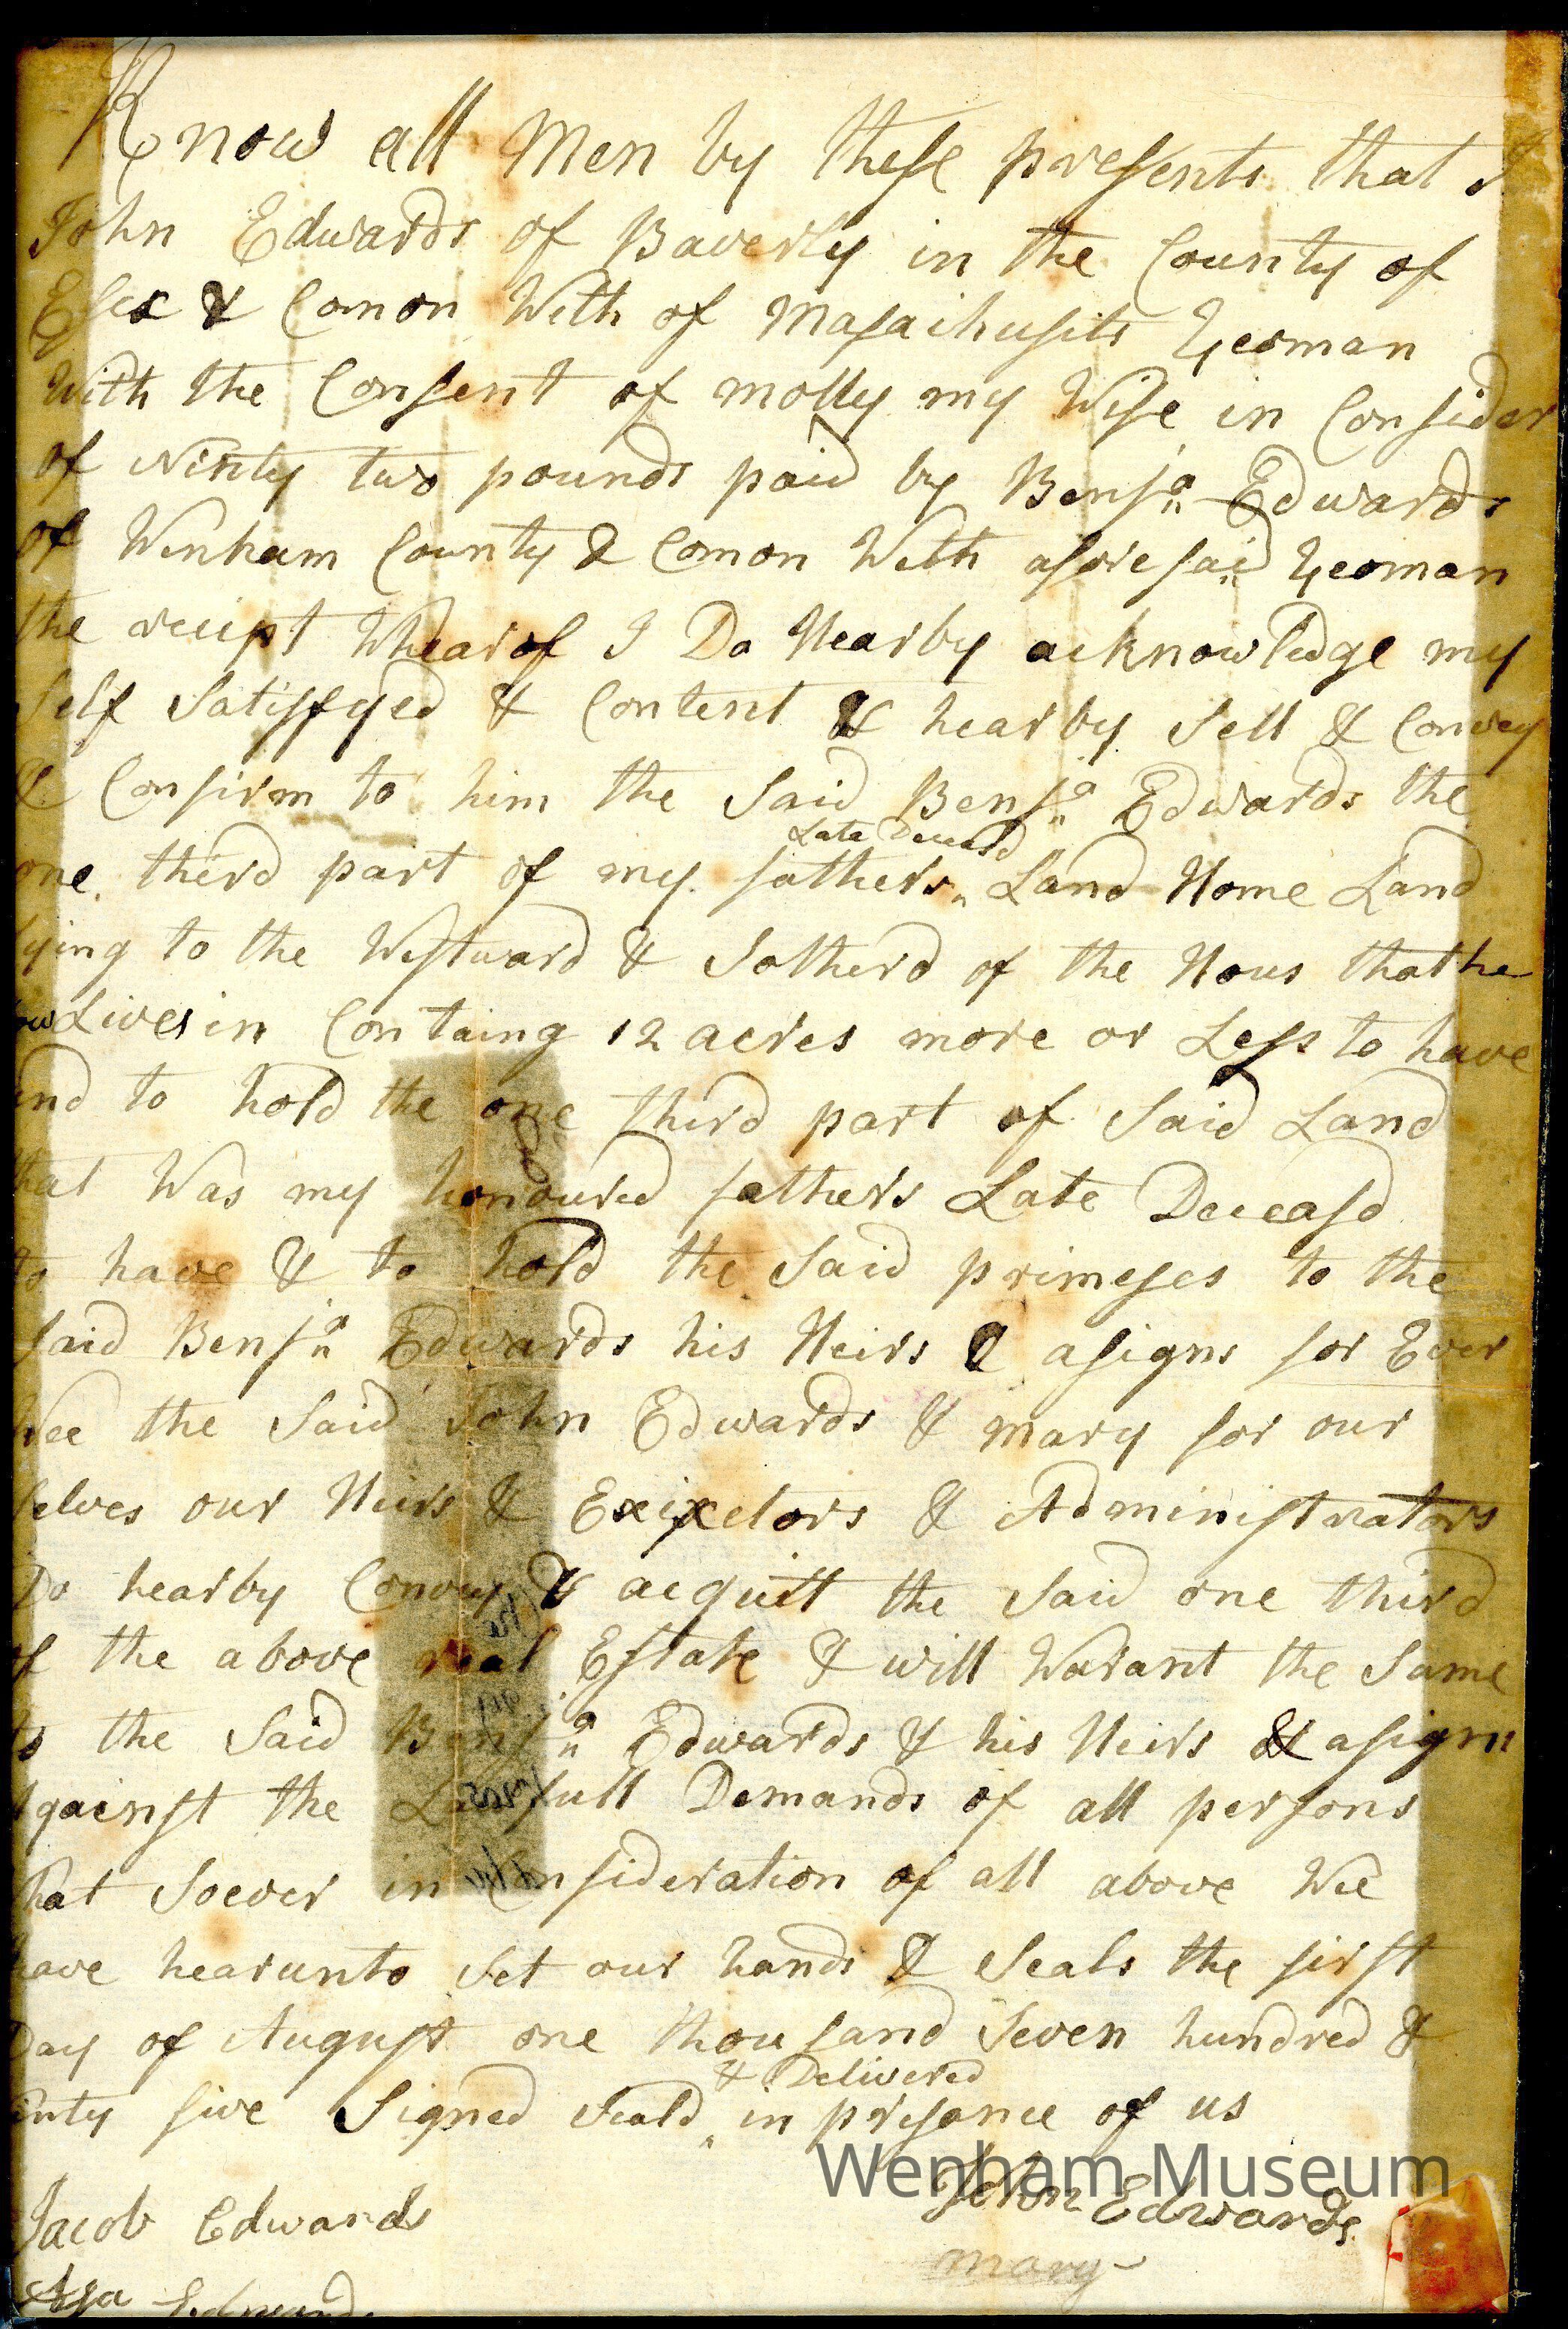 Know all Men by these presents that I
John Edwards of Baverly in the County of
Esex & Comon Welth of Masachusits Yeoman
With the Consent of molly my Wife in Consider
of Ninty two pounds paid by Benja Edwards
of Wenham County & Comon Welth aforesaid Yeoman
the recipt Whearof I Do Hearby acknowledge my
self Satisfyed & Content & hearby Sell & Convey
& Confirm to him the Said Benja Edwards the
Late Deceasd
one third part of my fathers Land Home Land
lying to the Westward & Sotherd of the Hous that he
now Lives in Containg 12 acres more or Less to have
and to hold the one third part of Said Land
that Was my honoured fathers Late Deceasd
to have & to hold the Said primeses to the
said Benja Edwards his Heirs & asigns for Ever
Wee the Said John Edwards & mary for our
selves our Heirs & Exixetors & Administrators
Do hearby Convey & acquitt the Said one third
of the above real Estate & will Warant the Same
to the Said Benja Edwards & his Heirs & asigns
Against the Lawfull Demands of all persons
What Soever in Consideration of all above Wee
have hearunto Set our hands & Seals the first
Day of August one thousand Seven hundred &
& Delivered
ninty five Signed Seald in presance of us
Wenham Museum
John Edwards
Jacob Edwards
mary
Asa Edwards